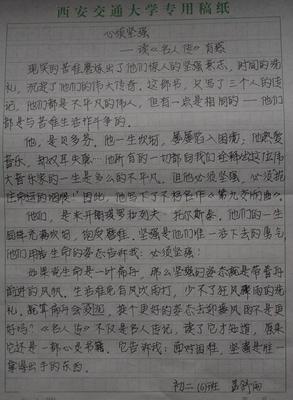 西安交通大学专用稿纸
必须坚强
——读《名人传》有感
现实的苦难磨炼出了他们惊人的坚强意志，时间的洗
礼，沉淀了他们的伟大传奇。这部书，只写了三个人的传
记，他们都是不平凡的伟人，但有一点是相同的——他们
都是与苦难生活作斗争的。
他，是贝多芬。他一生坎坷，屡屡陷入困境；他热爱
音乐，却双耳失聪……他所有的一切都向我们诠释出这位伟
大音乐家的一生是多么的不平凡。但他必须坚强，必须扼
住命运的咽喉！因此，他写下了不朽名作《第九交响曲》。
他们，是米开朗琪罗和列夫·托尔斯泰。他们的一生
同样充满坎坷，饱尝磨难。坚强是他们唯一活下去的勇气
他们用生命的姿态告诉我：必须坚强！
如果说生命是一叶扁舟，那么坚强的姿态就是带着舟
前进的风帆。生活难免有风吹雨打，少不了狂风骤雨的洗
礼。就算舟子会，换个更好的姿态去迎接风雨不是更
好吗？《名人传》不仅是名人传记，读了它才知道，原来
它还是一部心灵书籍。它告诉我：面对困难，坚强是唯一
拿得出手的东西。
初二(6)班